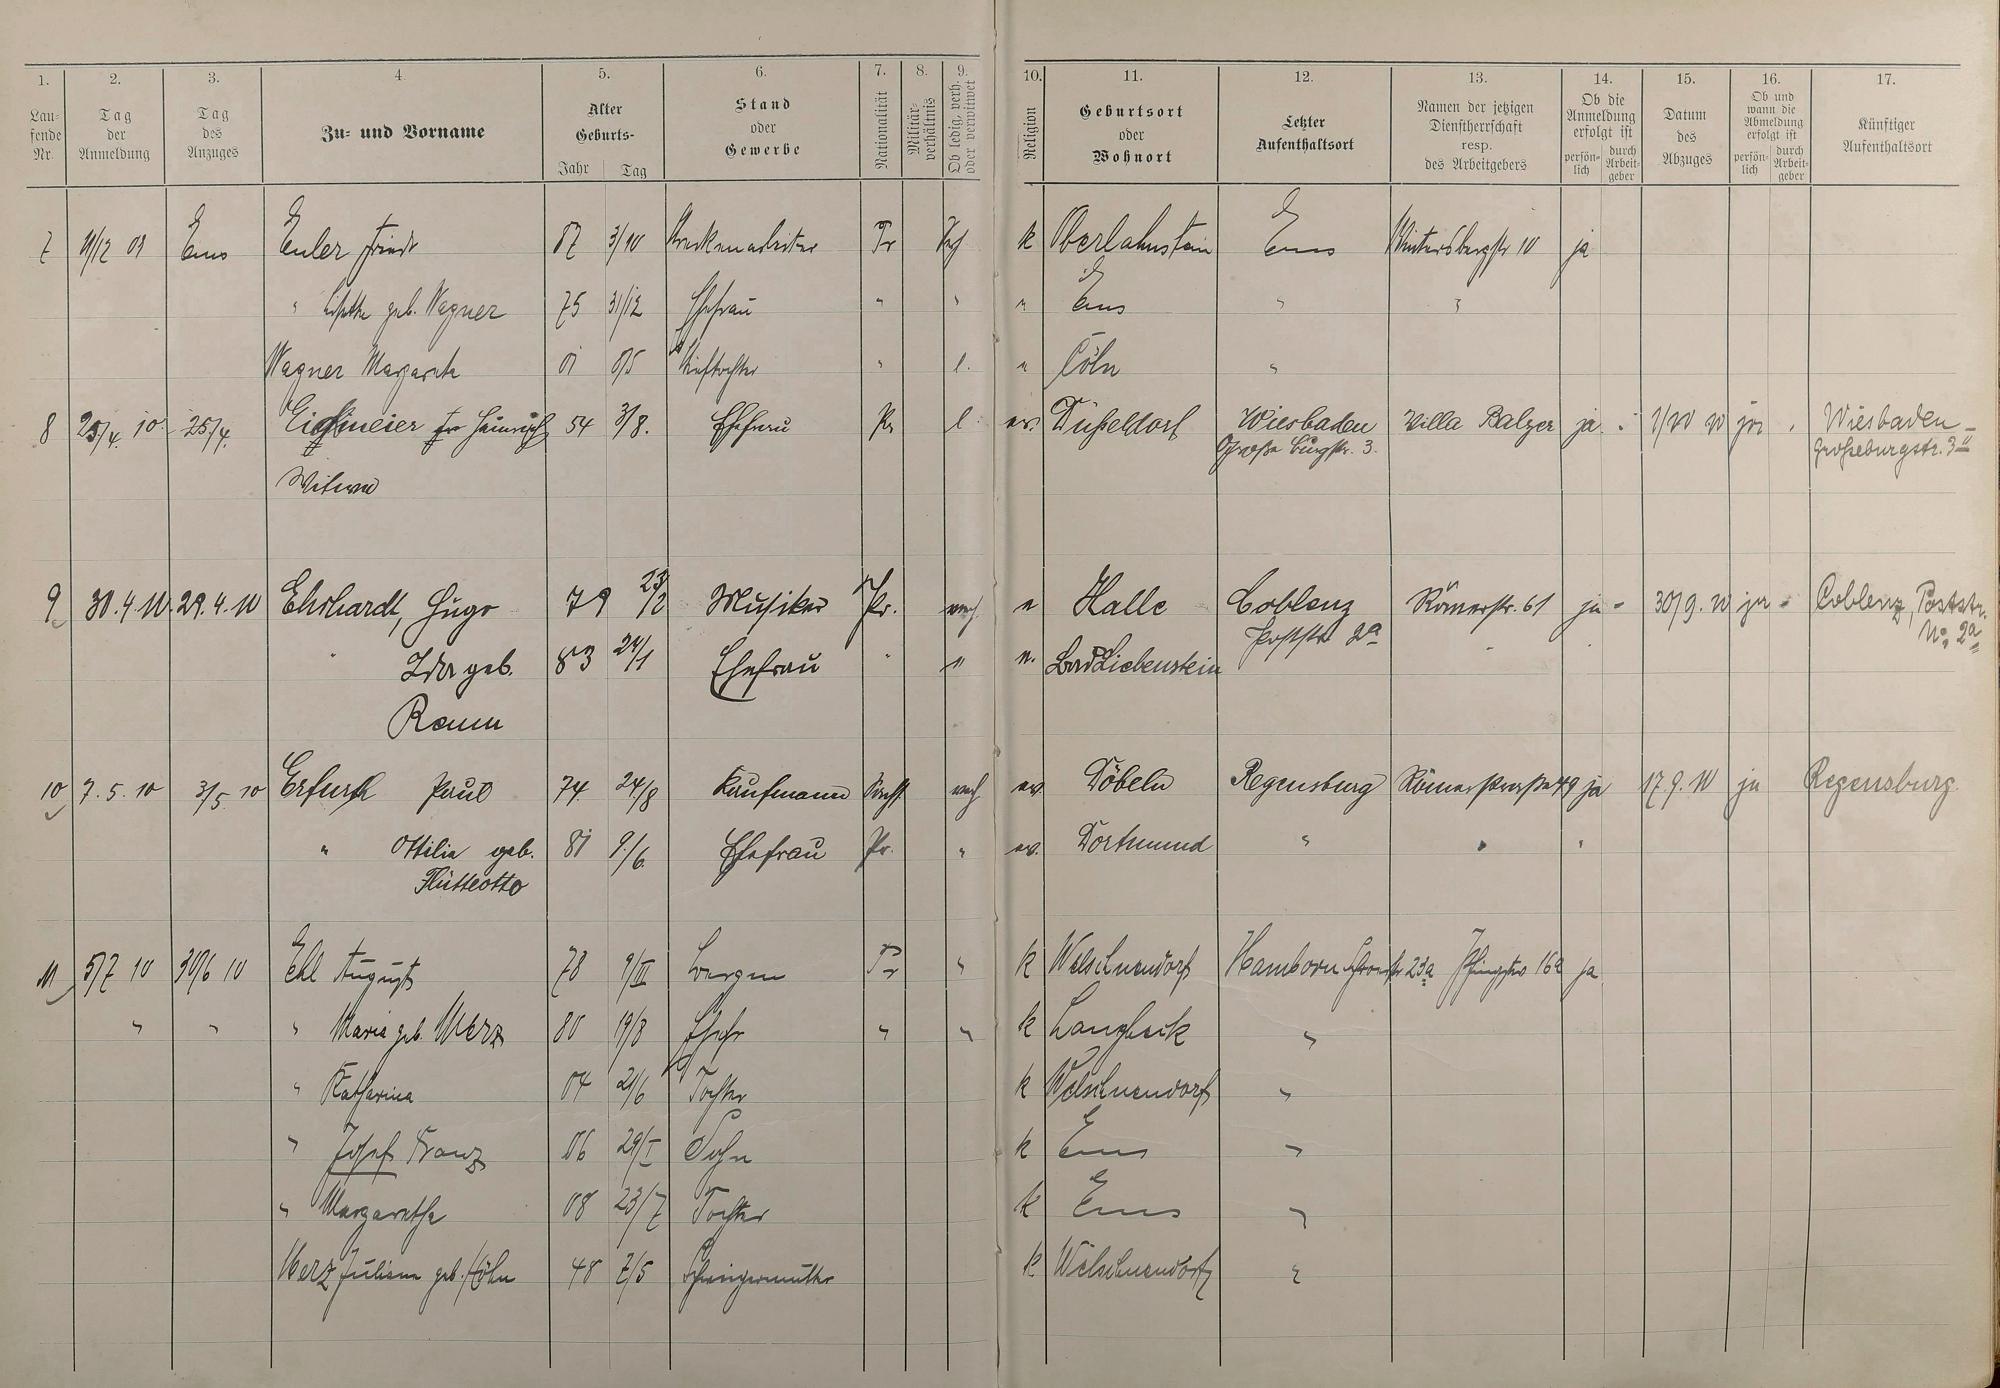 1. 2. 3. 4. 5. 6. 7. 8. 9. 10. 11. 12. 13. 14. 15. 16. 17.
Lau-
fende
Nr.
Tag
der
Anmeldung
Tag
des
Anzuges
Zu- und Vorname
Alter
Geburts-
Jahr Tag
Stand
oder
Gewerbe
Nationalität
Militär-
verhältnis
Ob ledig, verh.
oder verwitwet
Religion
Geburtsort
oder
Wohnort
Letzter
Aufenthaltsort
Namen der jetzigen
Dienstherrschaft
resp.
des Arbeitgebers
Ob die
Anmeldung
erfolgt ist
persön-
lich
durch
Arbeit-
geber
Datum
des
Abzuges
Ob und
wann die
Abmeldung
erfolgt ist
persön-
lich
durch
Arbeit-
geber
Künftiger
Aufenthaltsort
7 Ems Euler Friedr 3/10 Pr k Oberlahnstein Ems Wintersbergstr 10 ja
" geb. Wagner 75 31/12 Ehefrau " " " Ems " "
Wagner Margareta 01 Stieftochter " l. " Cöln "
8 25/4. 10 25/4. Heinrich 54 3/8. Ehefrau Pr l ev. Düsseldorf Wiesbaden Villa Balzer ja Wiesbaden
Große Burgstr. 3. Großeburgstr. 3
Witwe
9 30.4.10. 29.4.10 Ehrhardt, Hugo 79 23/2 Musiker Pr. verh. Halle Coblenz Römerstr. 61 ja - 30/9. 10 ja - Coblenz, Poststr.
Poststr 2a No. 2a
" Ida geb. 83 24/1 Ehefrau " " Bad Liebenstein
Ramm
10 7. 5. 10 3/5 10 Erfurth Paul 74. 24/8 Kaufmann verh ev. Döbeln Regensburg Römerstrasse 49 ja 17.9.10 ja Regensburg.
" Ottilie geb. 81 9./6. Ehefrau Pr. " ev. Dortmund "
Hütteotto
11 5/7 10 30/6 10 Ehl August 78 9/III Pr " k Welschneudorf Hamborn 23a 16a ja
" " " Maria geb. Merz 80 19/8 Ehefr " " k "
" Katharina 04 21/6 Tochter k Welschneudorf "
" Josef Franz 06 29/I Sohn k Ems "
" Margaretha 08 23/7 Tochter k Ems "
Merz geb. Höhn 48 7/5 Schwiegermutter k Welschneudorf "